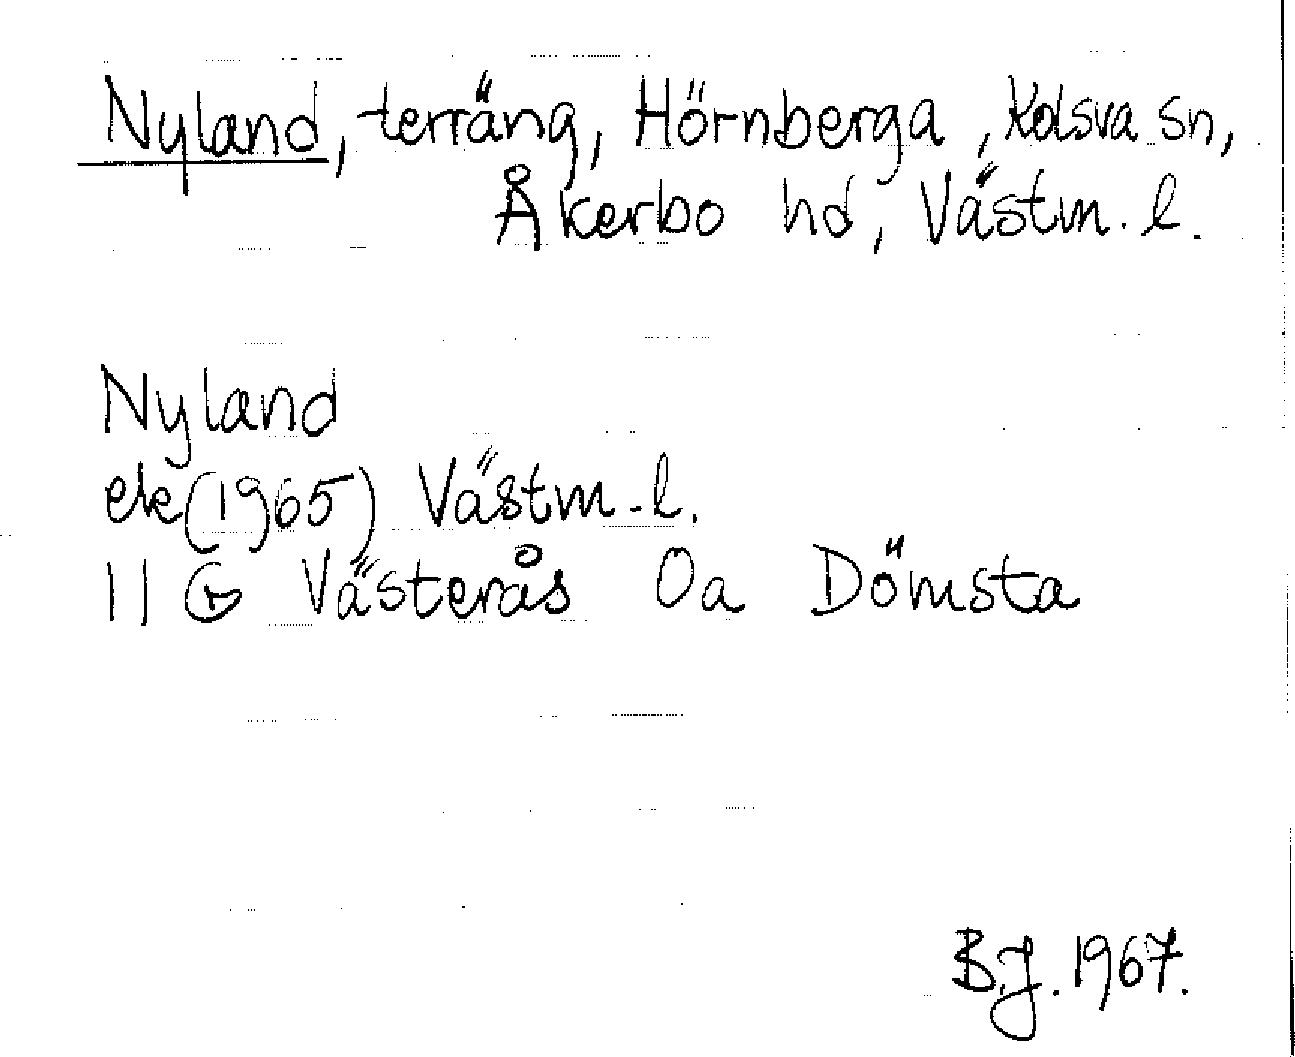 Nyland, terräng, Hörnberga, Kolsva sn,
Åkerbo hd, Västm. l.
Nyland
ek (1965) Västm. l.
11 G Västerås 0a Dömsta
B.J. 1967.